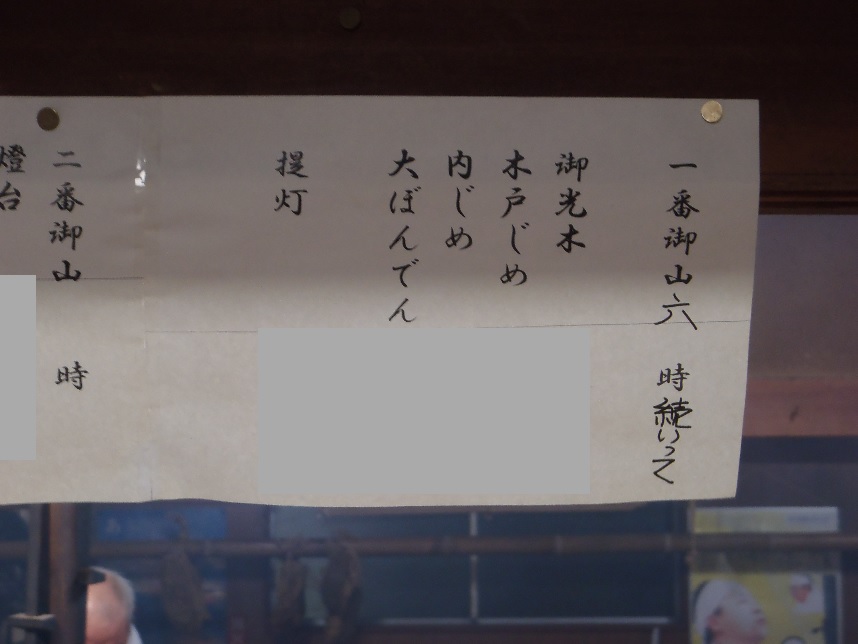 一番御山六時続いって
御光木
木戸じめ
内じめ
大ぼんでん
提灯
二番御山 時
燈台